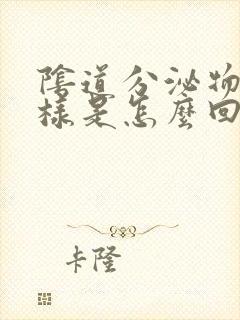 陰道分泌物
樣是怎麼回
卡隆